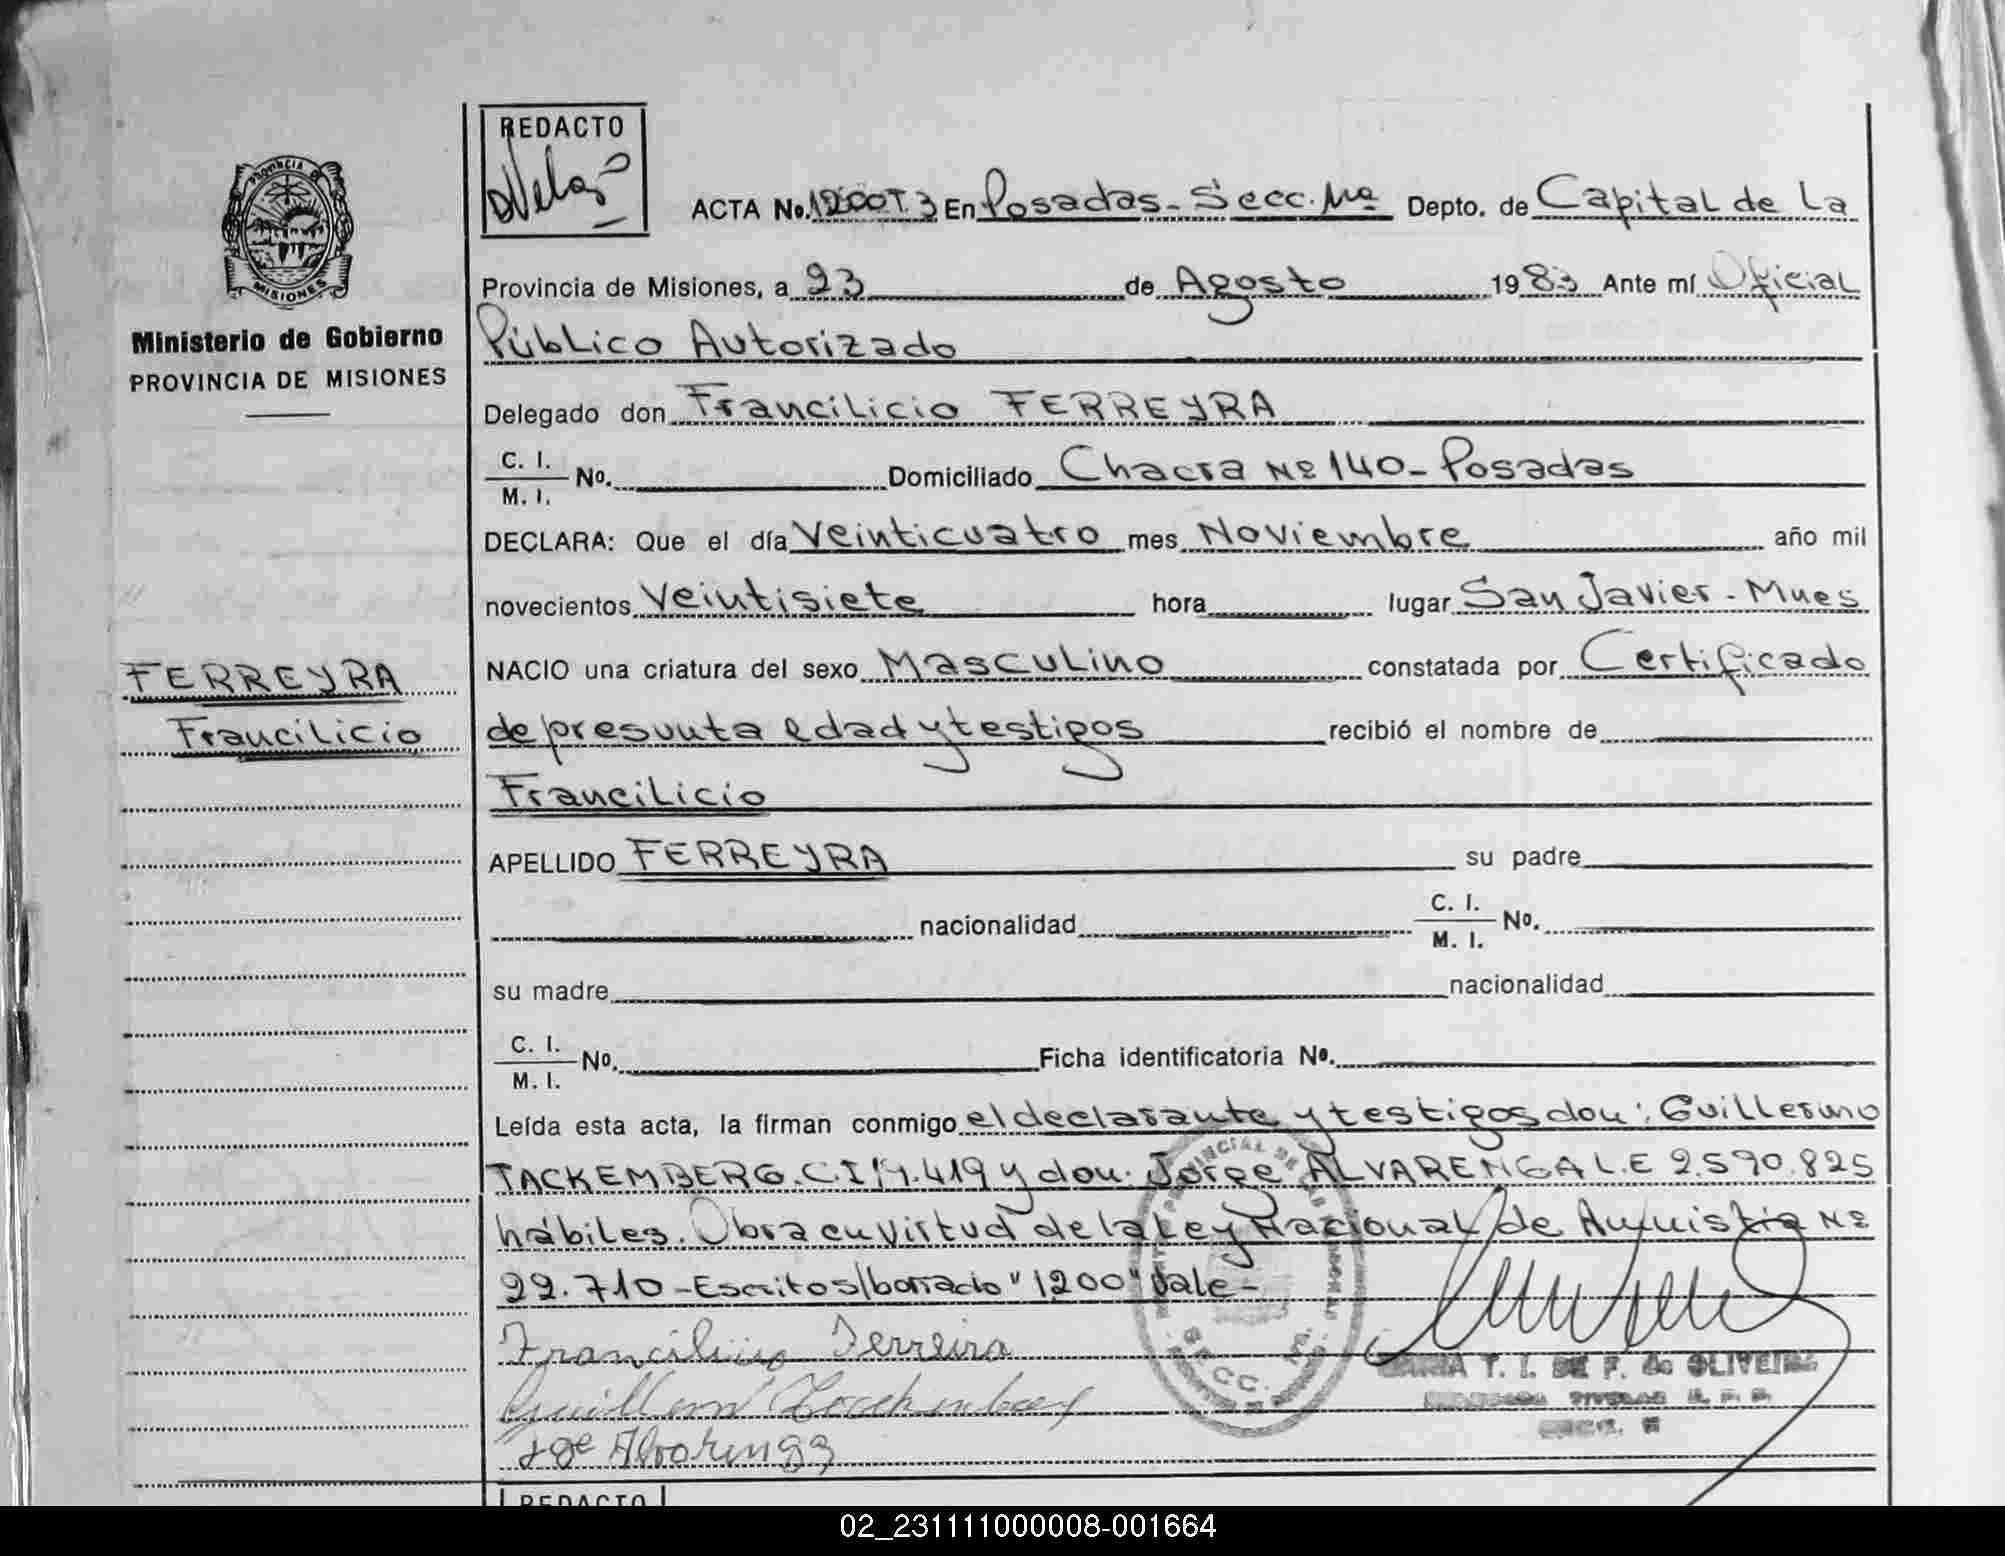 REDACTO
PROVINCIA DE
MISIONES
ACTA No. 1200 T. 3 En Posadas - Secc. Mª Depto. de Capital de La
Provincia de Misiones, a 23 de Agosto 1983 Ante mí Oficial
Ministerio de Gobierno
PROVINCIA DE MISIONES
Público Autorizado
Delegado don Francilicio FERREYRA
C. I.
M. I. No. Domiciliado Chacra Nº 140 - Posadas
DECLARA: Que el día Veinticuatro mes Noviembre año mil
novecientos Veintisiete hora lugar San Javier - Mnes
NACIO una criatura del sexo Masculino constatada por Certificado
FERREYRA
Francilicio
de presunta edad y testigos recibió el nombre de
Francilicio
APELLIDO FERREYRA su padre
nacionalidad C. I.
M. I. No.
su madre nacionalidad
C. I.
M. I. No. Ficha identificatoria No.
Leída esta acta, la firman conmigo el declarante y testigos don: Guillermo
TACKEMBERG. C.I. 419 y don: Jorge ALVARENGA L.E 2.590.825
hábiles. Obra en virtud de la Ley Nacional de Amnistia Nº
22.710 - Escritos/borrado "1200" Vale -
Francilicio Ferreira
Jge Alvarenga
MARIA T. I. DE F. de OLIVEIRA
REDACTO
02_231111000008-001664